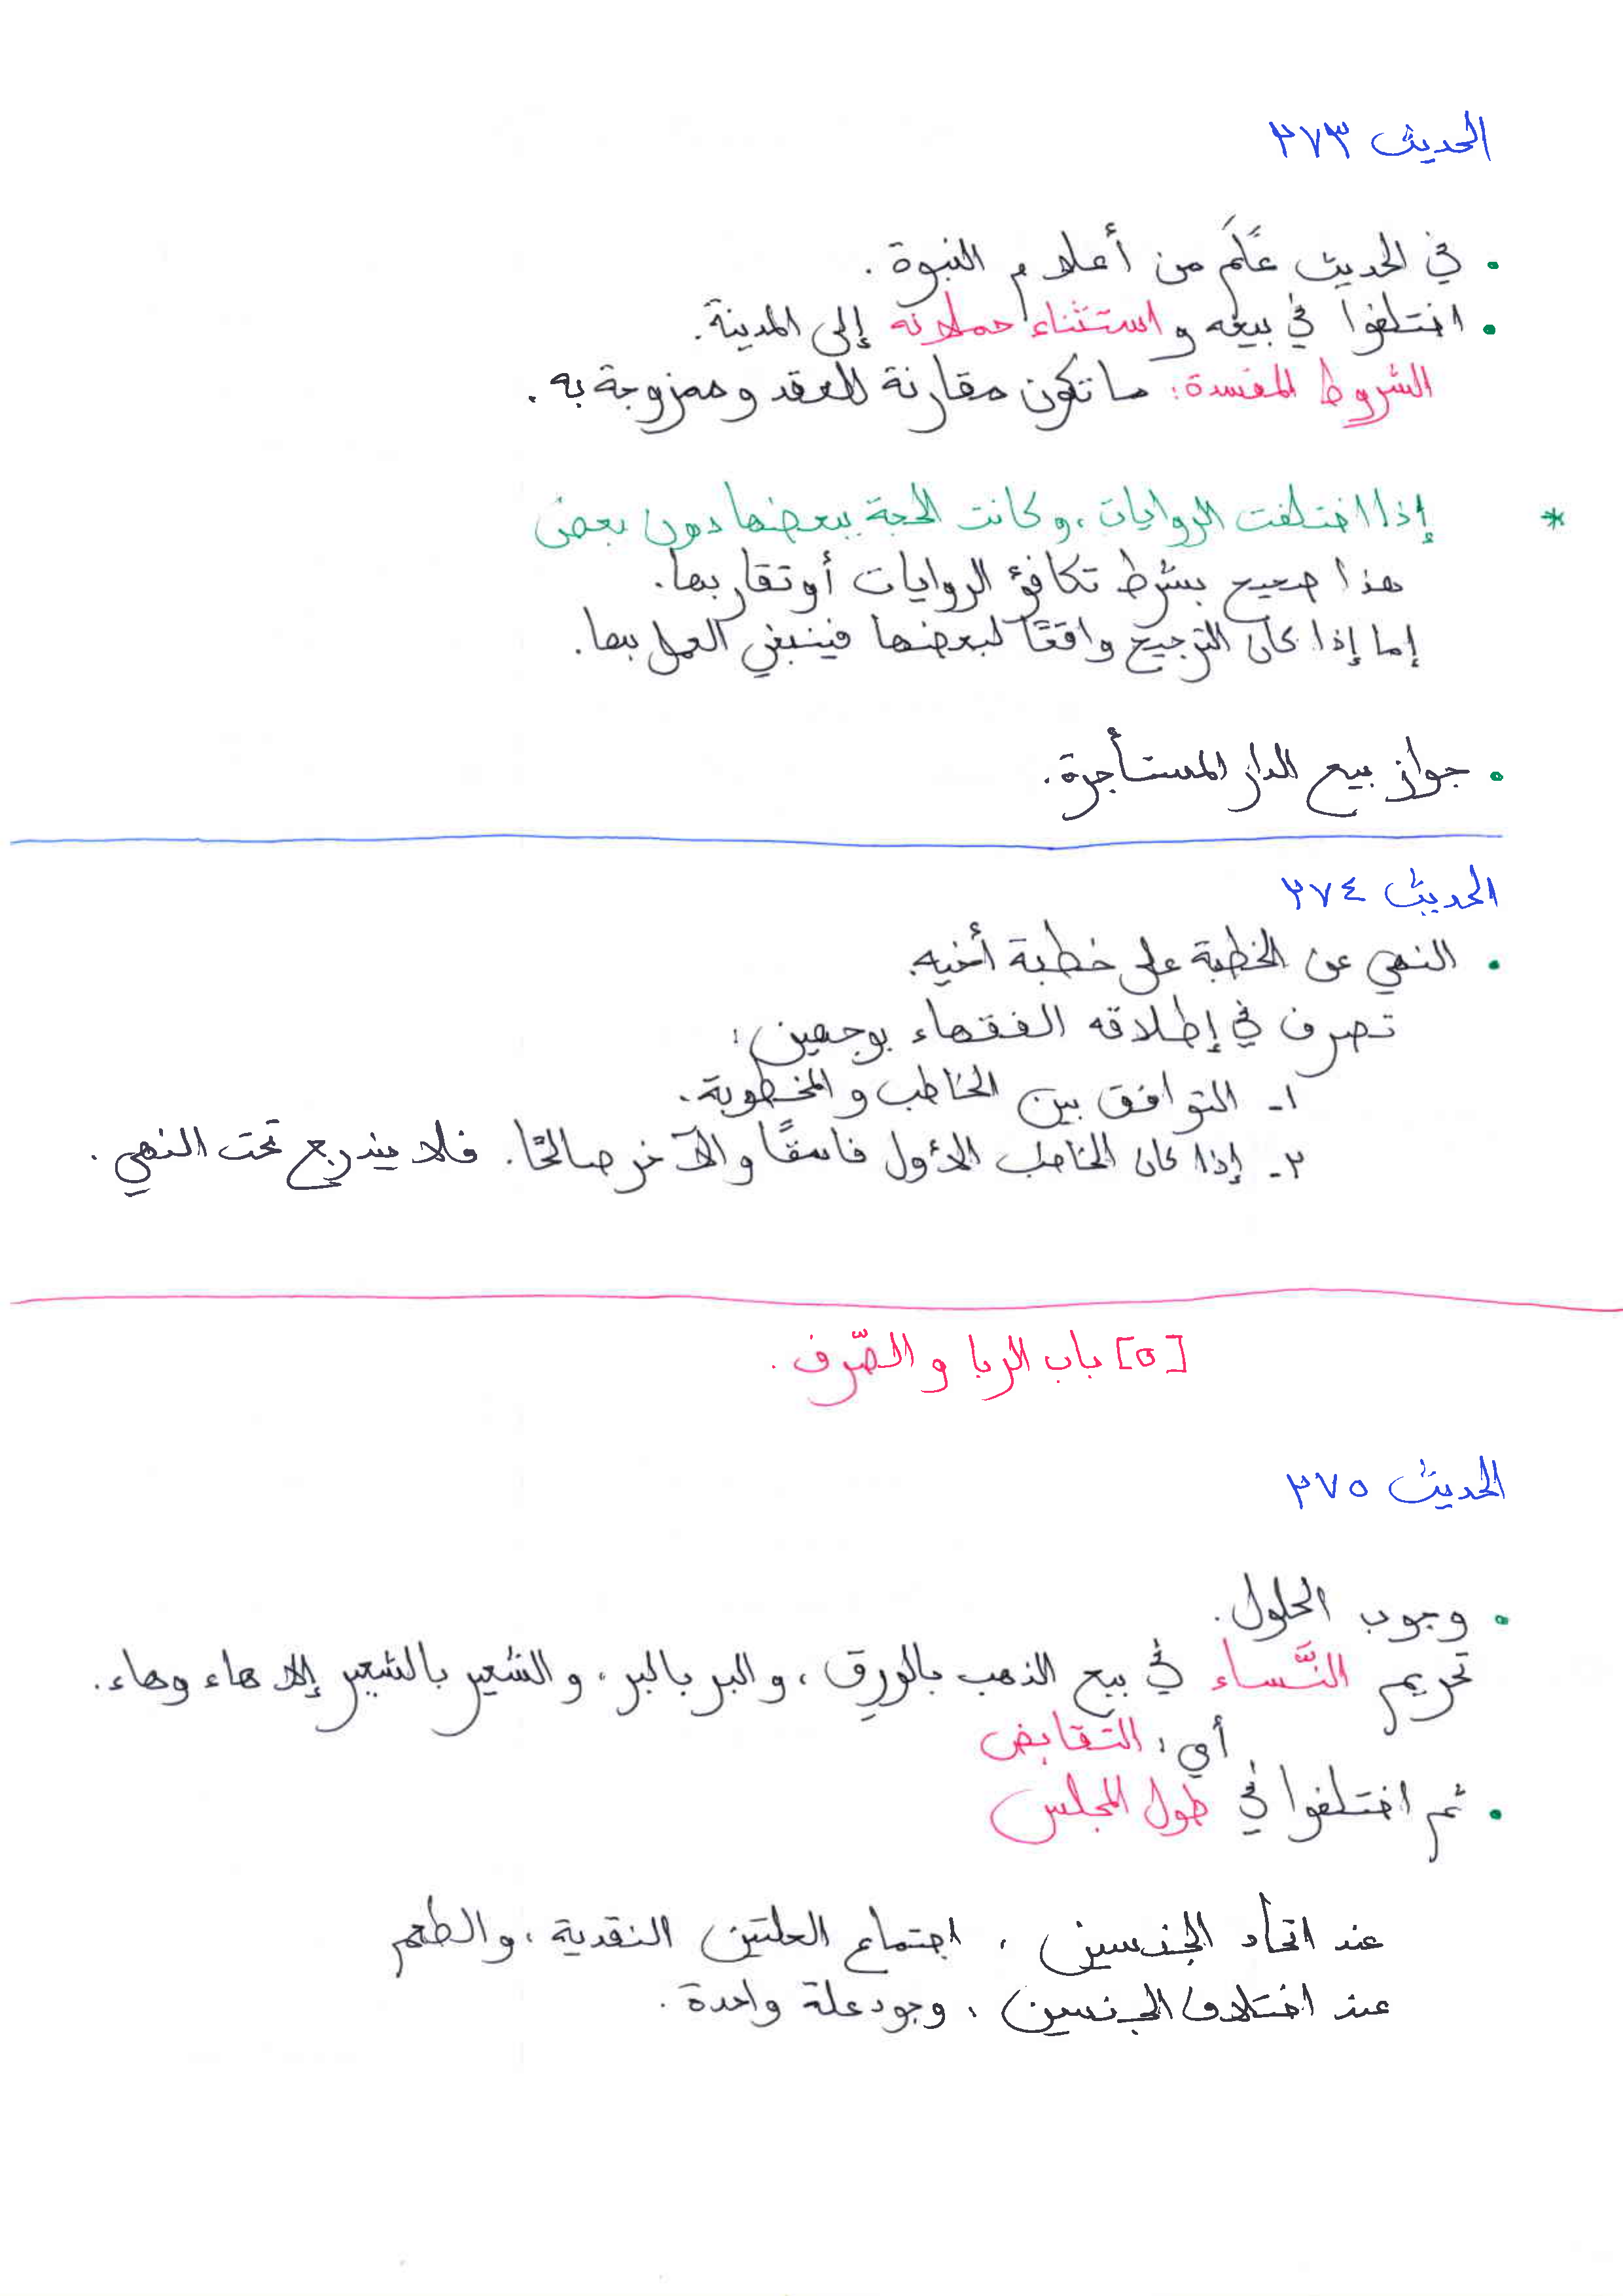 الحديث ٢٧٣
• في الحديث عَلَم من أعلام النبوة.
• اختلفوا في بيعه واستثناء حملانه إلى المدينة.
الشروط المفسدة: ما تكون مقارنة للعقد وممزوجة به.
* إذا اختلفت الروايات، وكانت الحجة ببعضها دون بعض
هذا صحيح بشرط تكافؤ الروايات أو تقاربها.
إما إذا كان الترجيح واقعًا لبعضها فينبغي العمل بها.
• جواز بيع الدار المستأجرة.
الحديث ٢٧٤
• النهي عن الخطبة على خطبة أخيه.
تصرف في إطلاقه الفقهاء بوجهين:
١- التوافق بين الخاطب والمخطوبة.
٢- إذا كان الخاطب الأول فاسقًا والآخر صالحًا. فلا يندرج تحت النهي.
[٥] باب الربا والصّرف.
الحديث ٢٧٥
• وجوب الحلول.
تحريم النَّساء في بيع الذهب بالورق، والبر بالبر، والشعير بالشعير إلا هاء وهاء.
أي: التقابض
• ثم اختلفوا في طول المجلس
عند اتحاد الجنسين، اجتماع العلتين النقدية، والطعم
عند اختلاف الجنسين، وجود علة واحدة.